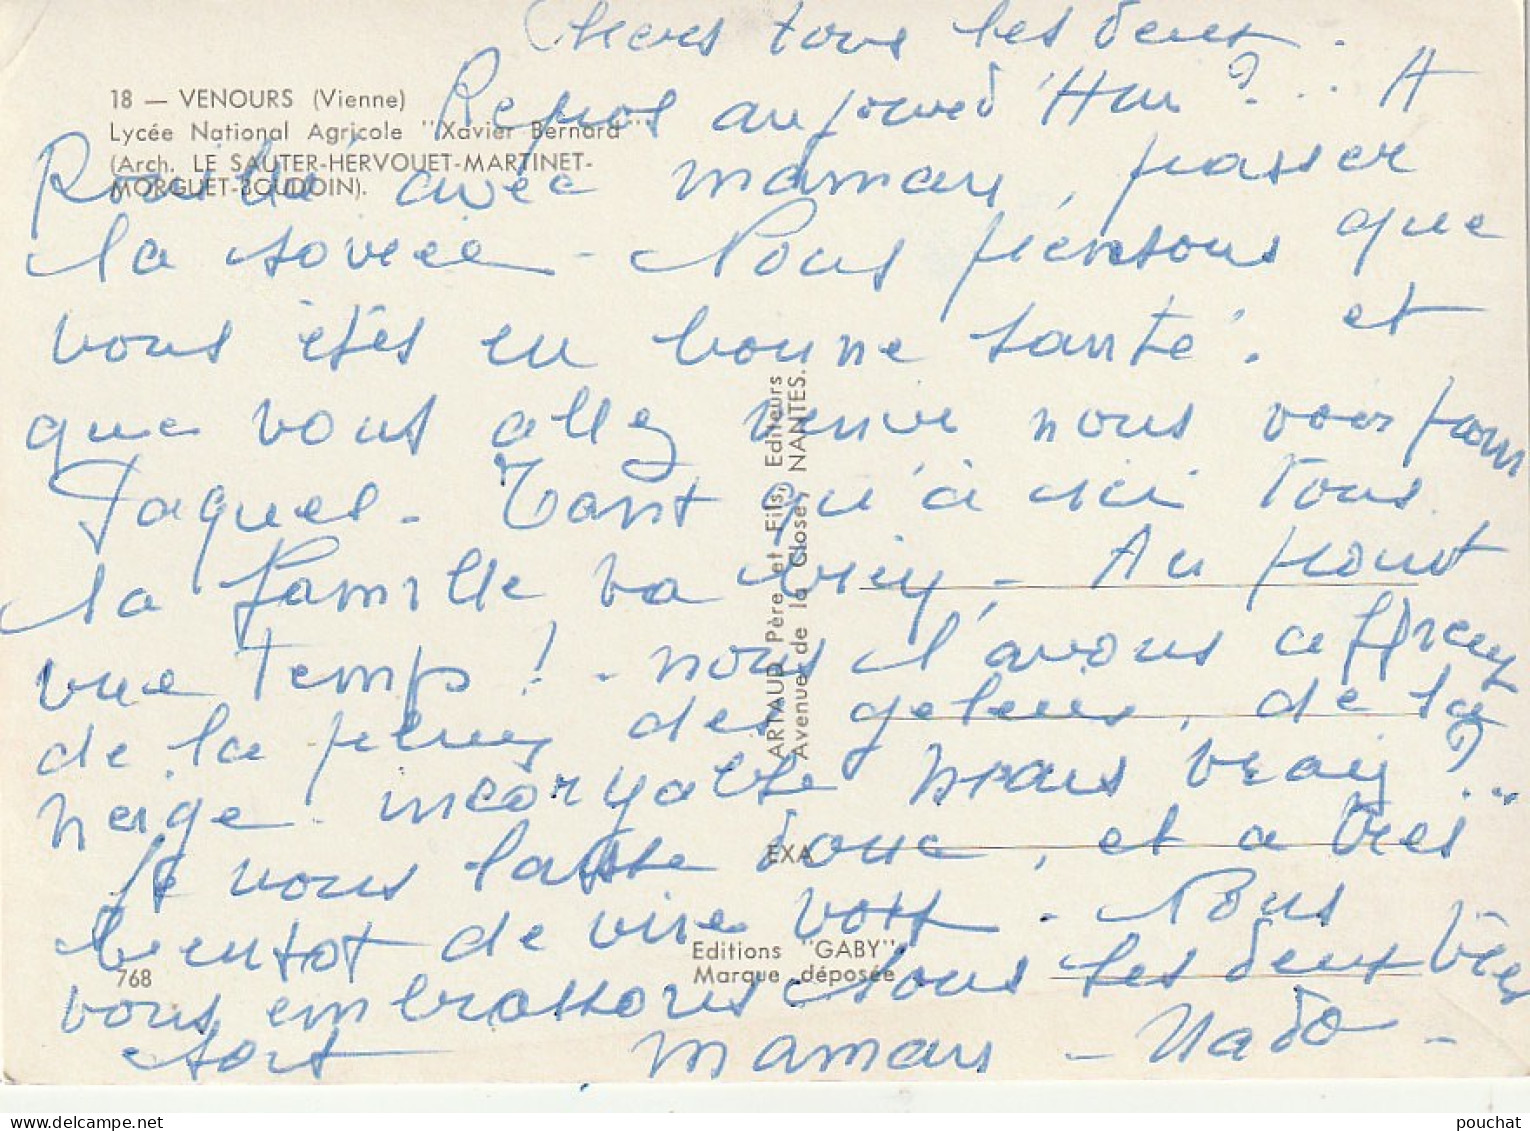 Chers tous les deux.
18 — VENOURS (Vienne)
Lycée National Agricole "Xavier Bernard"
(Arch. LE SAUTER-HERVOUET-MARTINET-
MORGUET-BOUDOIN).
Repos aujourd'Hui ?... A
avec maman, passer
la soirée - Nous pensons que
vous êtes en bonne santé. et
que vous allez venir nous voir pour
Jaques. Tant qu'à ici Tous
la famille va bien - Au point
vue Temps ! - nous l'avons affreux
de la pluie des gelées, de la
neige incoryable mais vray ?...
Je vous laisse donc, et a Tres
bientot de vive voix. Nous
vous embrassons tous les deux Tres
fort maman - Nado -
ARTAUD Père et Fils, Editeurs
Avenue de la Close, NANTES.
EXA
Editions "GABY"
Marque déposée
768
pouchat